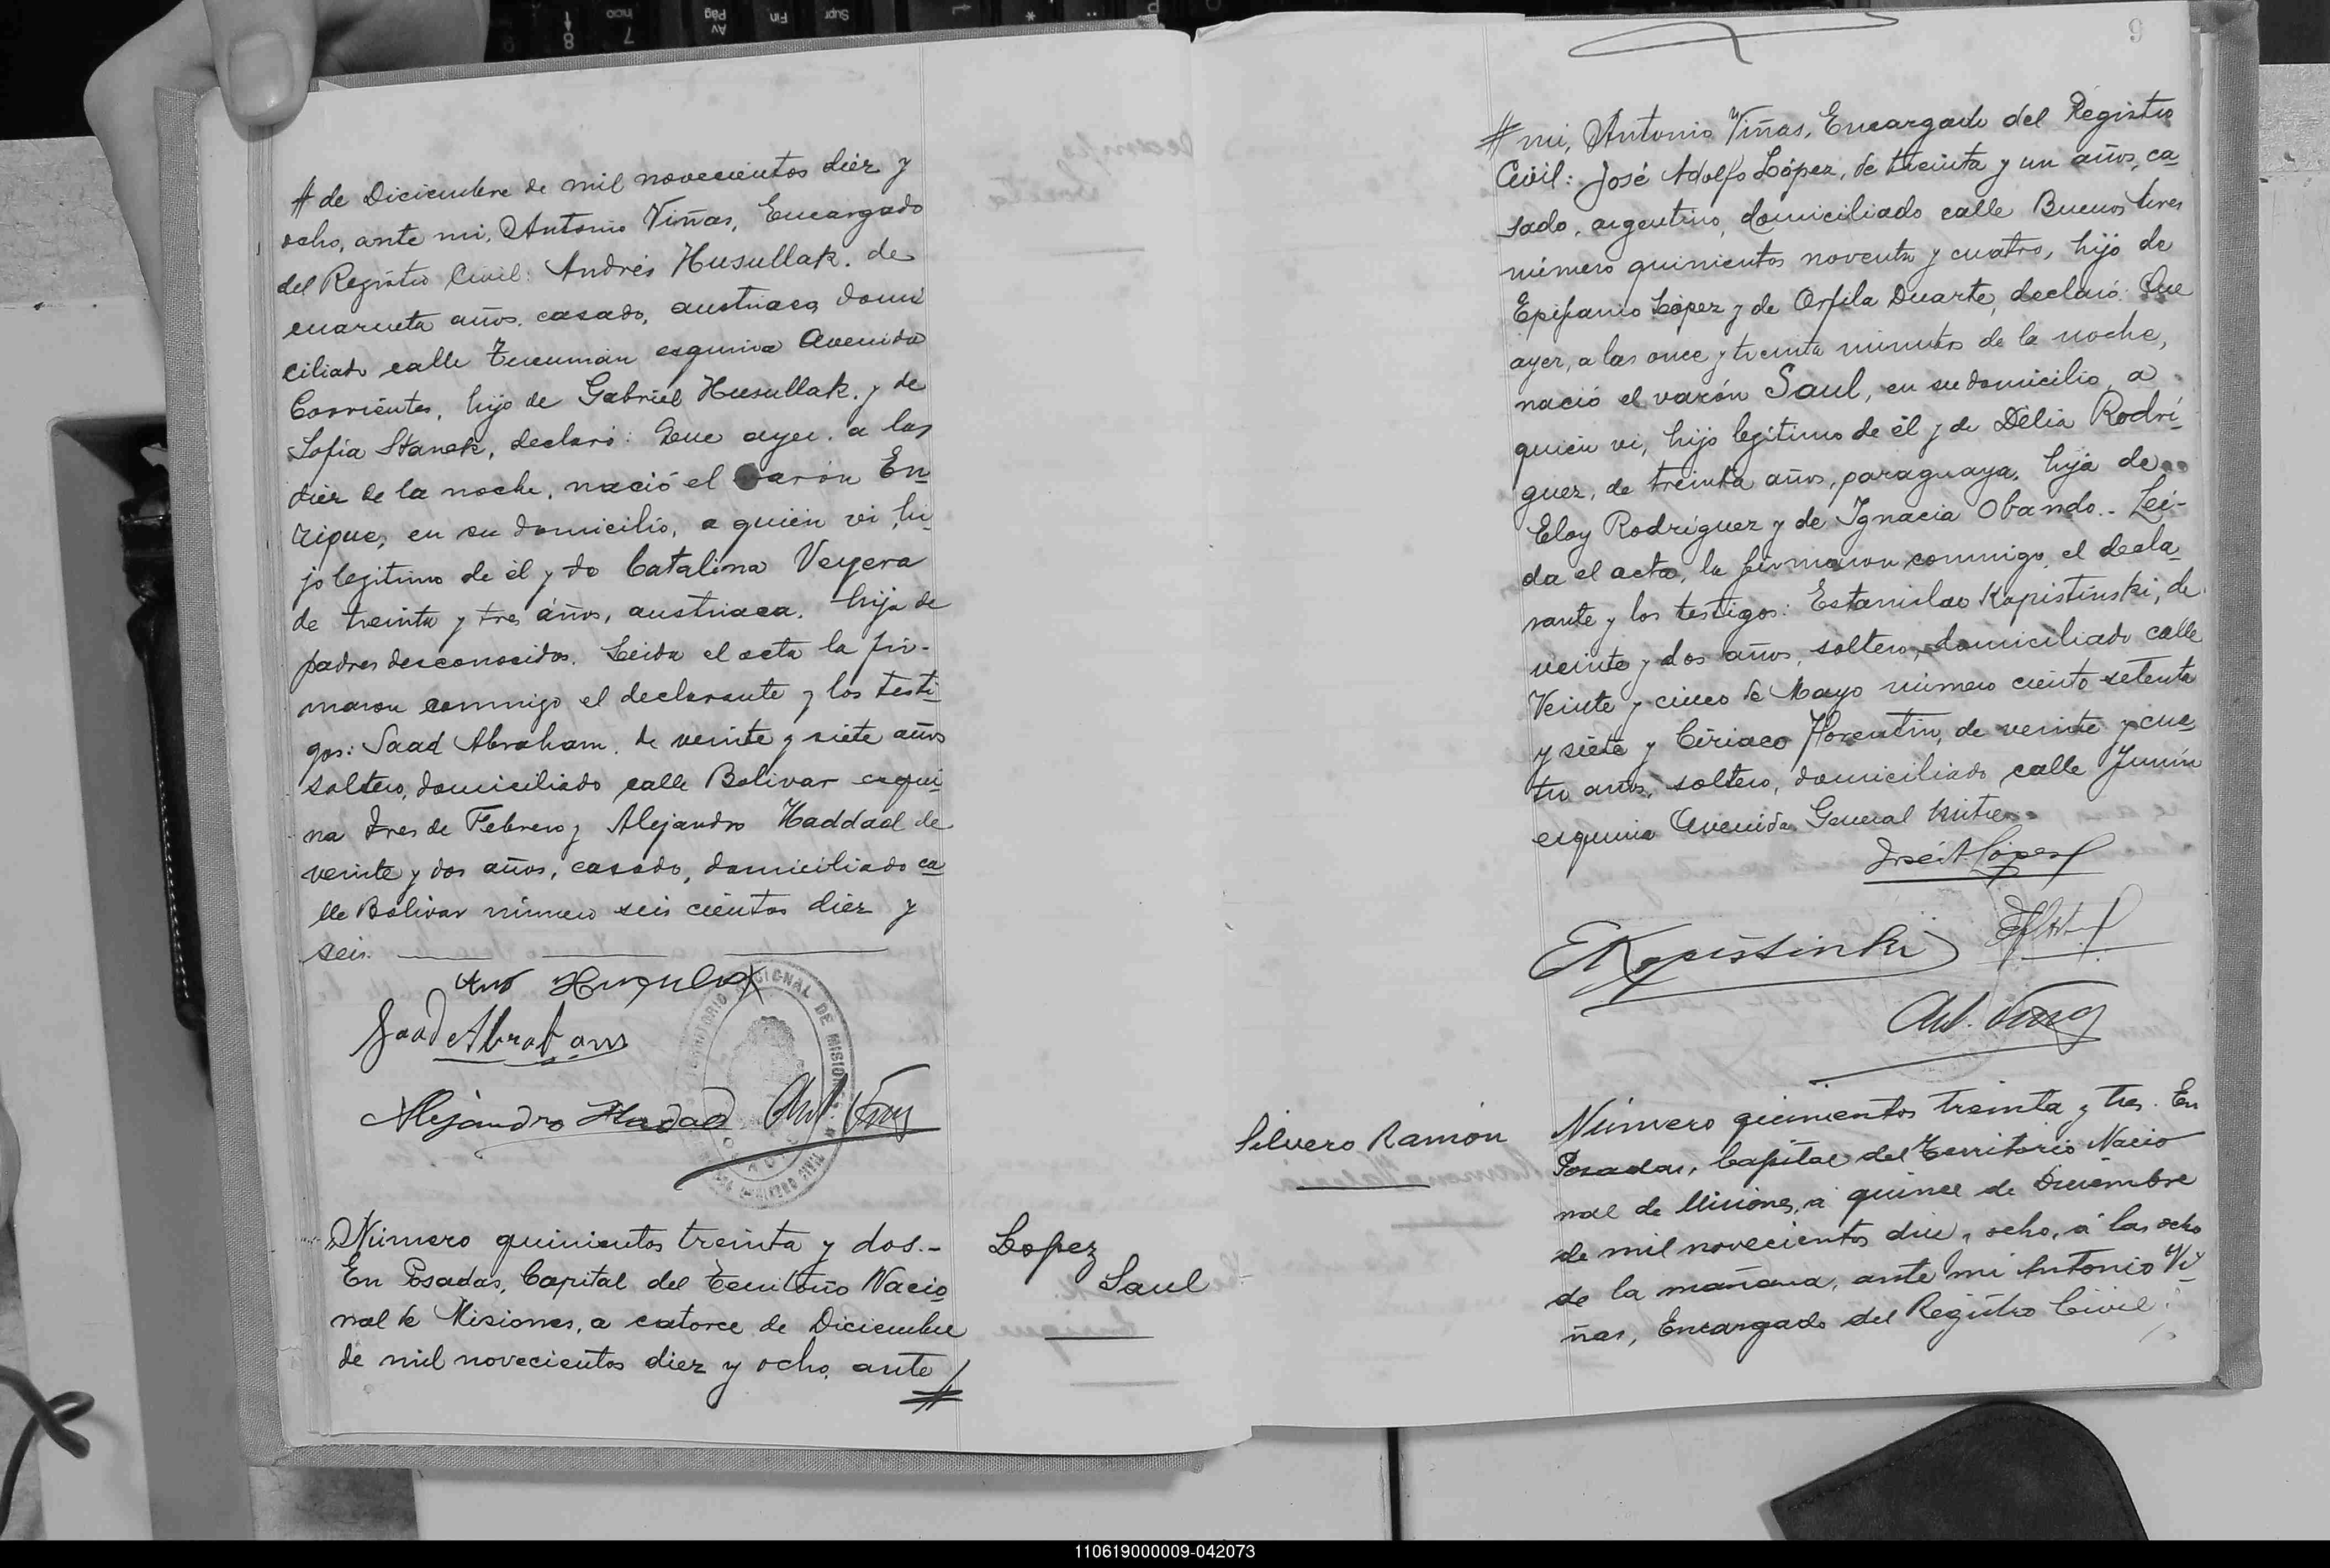 # de Diciembre de mil novecientos diez y
ocho, ante mi, Antonio Viñas, Encargado
del Registro Civil: Andrés Husullak, de
cuarenta años, casado, austriaco, domi
ciliado calle Tucumán esquina Avenida
Corrientes, hijo de Gabriel Husullak, y de
Sofía Stanek, declaró: Que ayer, a las
diez de la noche, nació el varón En
rique, en su domicilio, a quien vi, hi
jo legitimo de él y de Catalina Veyera
de treinta y tres años, austriaca, hija de
padres desconocidos. Leida el acta la fir-
maron conmigo el declarante y los testi
gos: Saad Abraham, de veinte y siete años
soltero, domiciliado calle Bolivar esqui
na Tres de Febrero y Alejandro Haddad de
veinte y dos años, casado, domiciliado ca
lle Bolivar número seis cientos diez y
seis.
Saad Abraham
Alejandro Hadad Ant. Viñas
TERRITORIO NACIONAL DE MISIONES
Número quinientos treinta y dos.-
En Posadas, Capital del Territorio Nacio
nal de Misiones, a catorce de Diciembre
de mil novecientos diez y ocho, ante
#
Lopez
Saul
9
# mi, Antonio Viñas, Encargado del Registro
Civil: José Adolfo López, de treinta y un años, ca
sado, argentino, domiciliado calle Buenos Aires
número quinientos noventa y cuatro, hijo de
Epifanio López y de Orfila Duarte, declaró: Que
ayer, a las once y treinta minutos de la noche,
nació el varón Saul, en su domicilio, a
quien vi, hijo legitimo de él y de Délia Rodrí
guez, de treinta años, paraguaya, hija de
Eloy Rodríguez y de Ignacia Obando.- Lei-
da el acta, la firmaron conmigo, el decla
rante y los testigos: Estanislao Kapistinski, de
veinte y dos años, soltero, domiciliado calle
Veinte y cinco de Mayo número ciento setenta
y siete y Ciriaco Florentin, de veinte y cua
tro años, soltero, domiciliado, calle Junín
esquina Avenida General Mitre.
José A. López
E Kapistinski
Ant. Viñas
Silvero Ramón
Número quinientos treinta y tres. En
Posadas, Capital del Territorio Nacio
nal de Misiones, a quince de Diciembre
de mil novecientos diez y ocho, á las ocho
de la mañana, ante mi Antonio Vi
ñas, Encargado del Registro Civil:
110619000009-042073